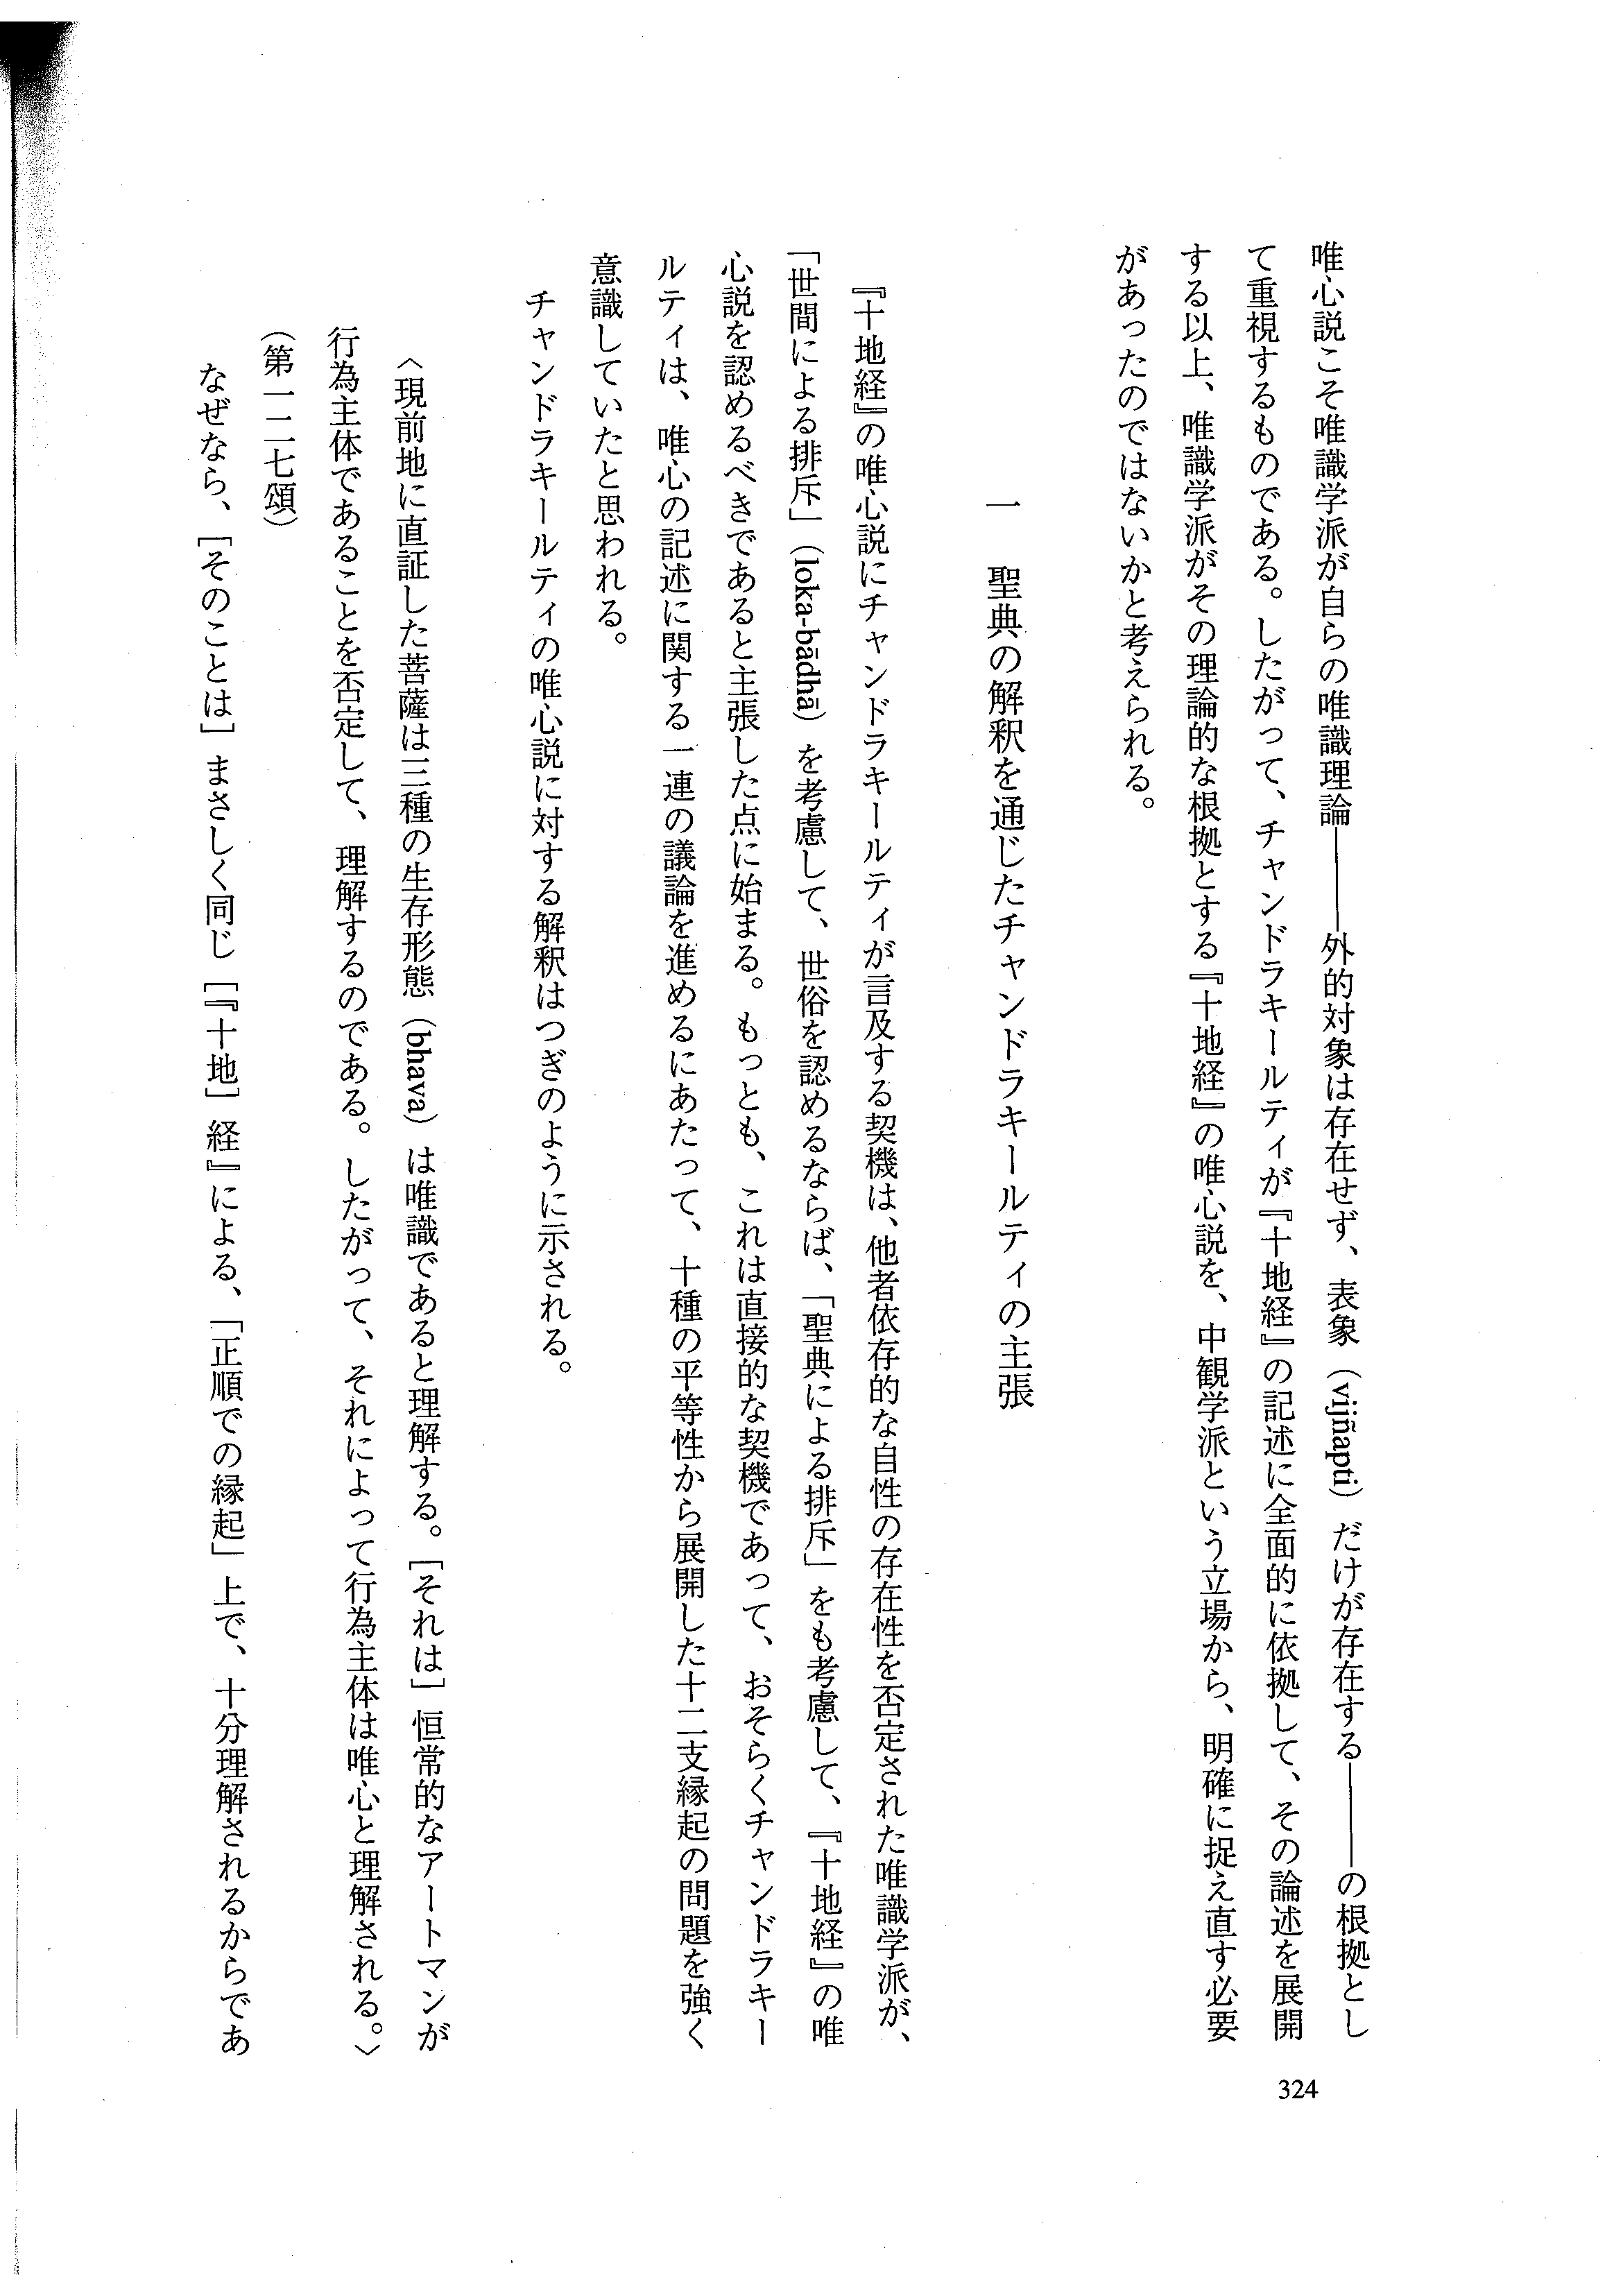 唯心説こそ唯識学派が自らの唯識理論――外的対象は存在せず、表象（vijñapti）だけが存在する――の根拠とし
て重視するものである。したがって、チャンドラキールティが『十地経』の記述に全面的に依拠して、その論述を展開
する以上、唯識学派がその理論的な根拠とする『十地経』の唯心説を、中観学派という立場から、明確に捉え直す必要
があったのではないかと考えられる。
一　聖典の解釈を通じたチャンドラキールティの主張
『十地経』の唯心説にチャンドラキールティが言及する契機は、他者依存的な自性の存在性を否定された唯識学派が、
「世間による排斥」（loka-bādhā）を考慮して、世俗を認めるならば、「聖典による排斥」をも考慮して、『十地経』の唯
心説を認めるべきであると主張した点に始まる。もっとも、これは直接的な契機であって、おそらくチャンドラキー
ルティは、唯心の記述に関する一連の議論を進めるにあたって、十種の平等性から展開した十二支縁起の問題を強く
意識していたと思われる。
チャンドラキールティの唯心説に対する解釈はつぎのように示される。
〈現前地に直証した菩薩は三種の生存形態（bhava）は唯識であると理解する。［それは］恒常的なアートマンが
行為主体であることを否定して、理解するのである。したがって、それによって行為主体は唯心と理解される。〉
（第一二七頌）
なぜなら、［そのことは］まさしく同じ［『十地］経』による、「正順での縁起」上で、十分理解されるからであ
324